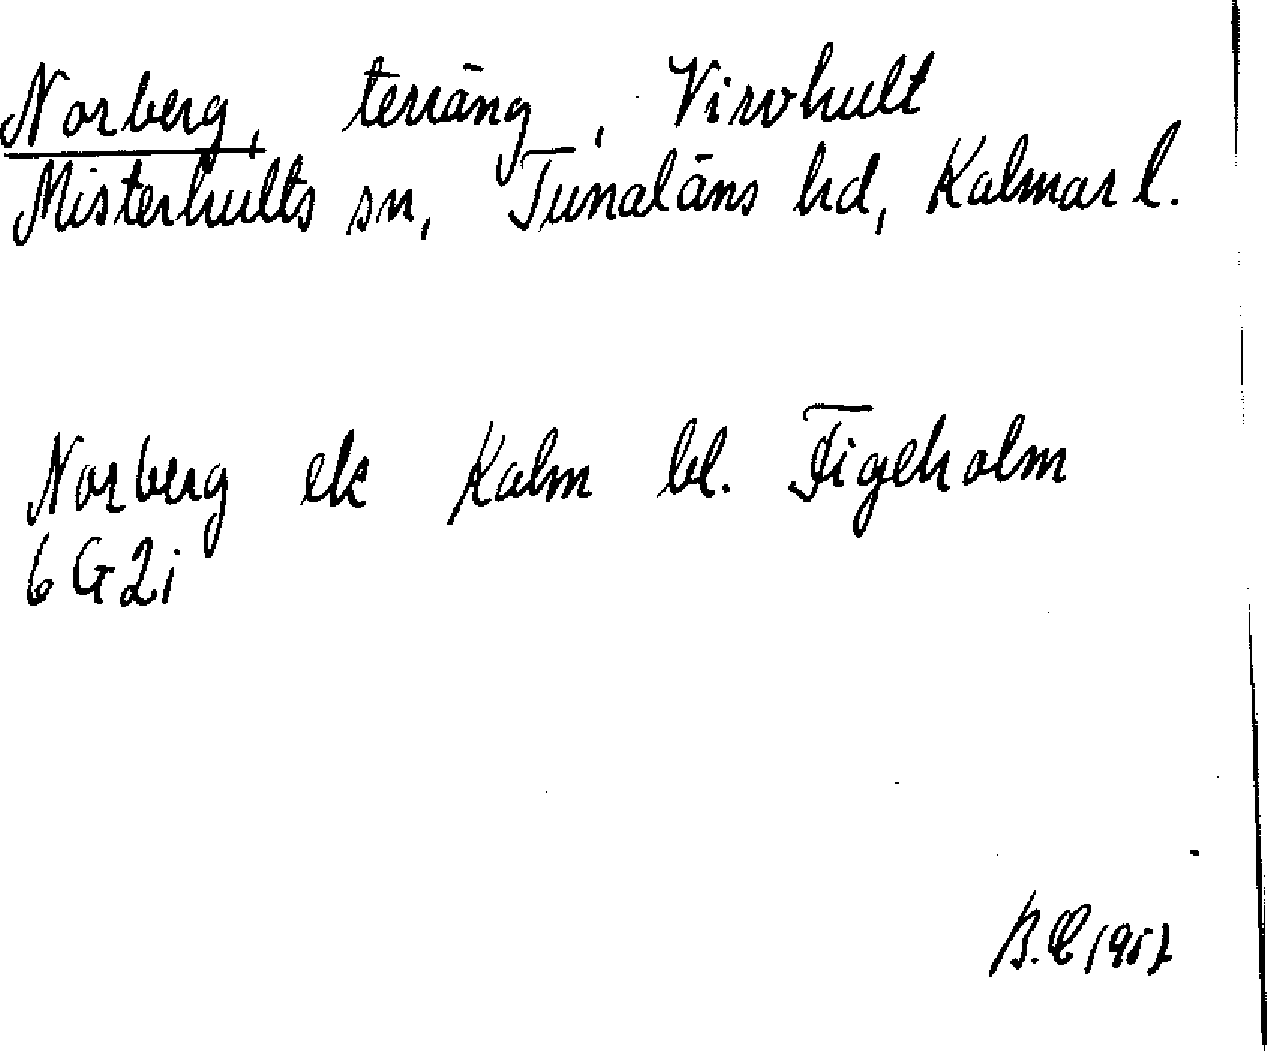 Norberg, terräng, Virvhult
Misterhults sn, Tunaläns hd, Kalmar l.
Norberg ek Kalm bl. Figeholm
6 G 2i
B.E 1957